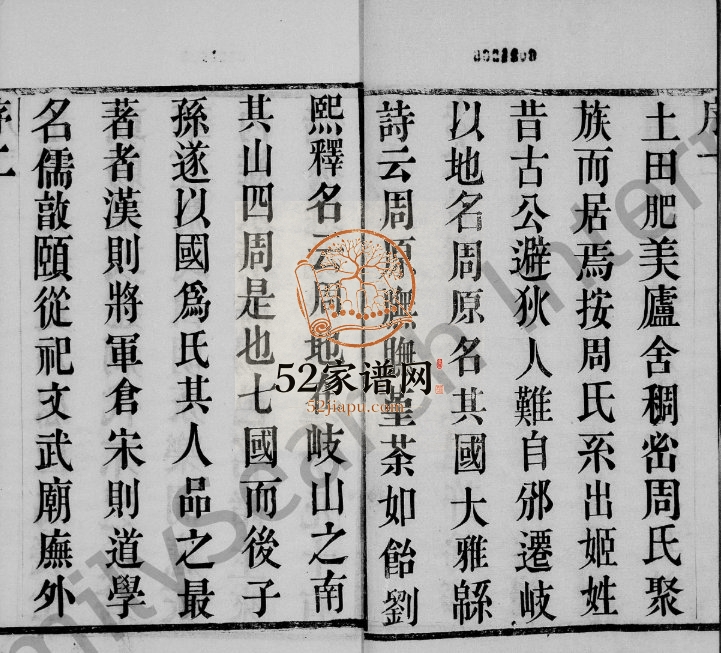 序一
土田肥美廬舍稠密周氏聚
族而居焉按周氏系出姬姓
昔古公避狄人難自邠遷岐
以地名周原名其國大雅緜
詩云周原膴膴堇荼如飴劉
熙釋名云周地在岐山之南
其山四周是也七國而後子
孫遂以國爲氏其人品之最
著者漢則將軍倉宋則道學
名儒敦頤從祀文武廟廡外
序二
52家谱网
52jiapu.com